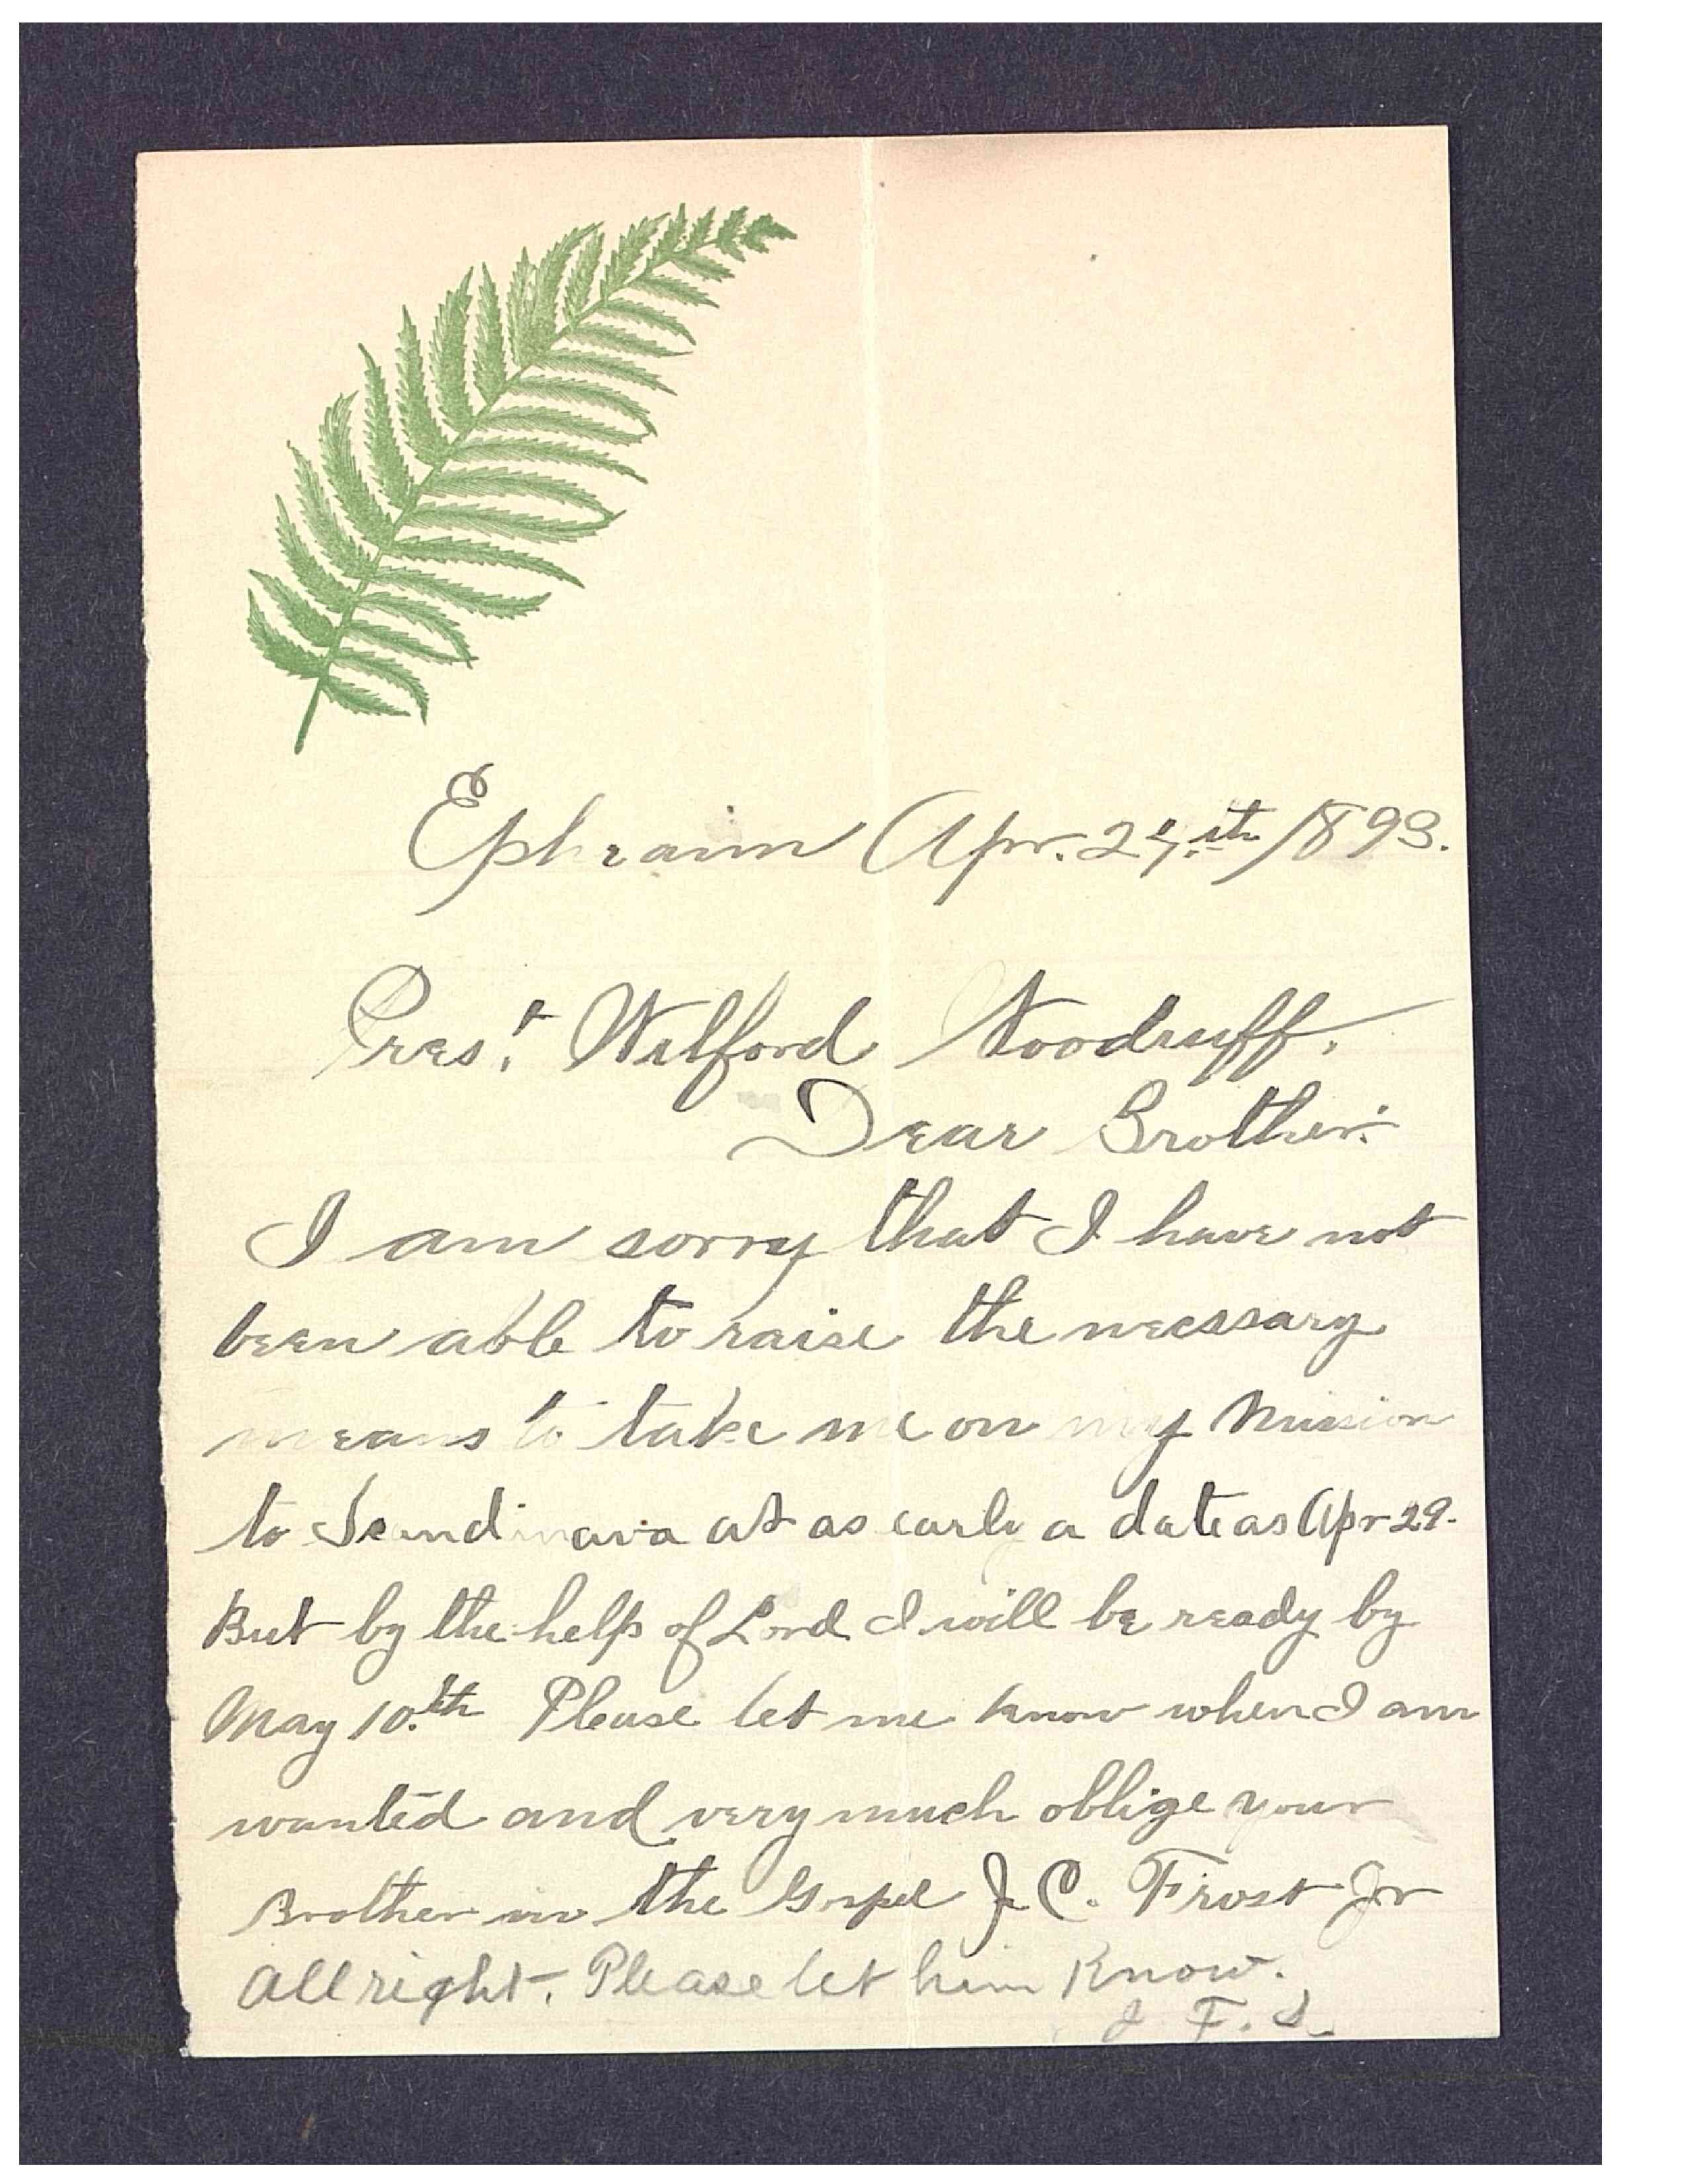 Ephraim Apr. 25th 1893.
Pres't Wilford Woodruff.
Dear Brother:
I am sorry that I have not
been able to raise the necessary
means to take me on my Mission
to Scandinava at as early a date as Apr 29.
But by the help of Lord I will be ready by
May 10th Please let me know when I am
wanted and very much oblige your
Brother in the Gospel J. C. Frost Jr
All right. Please let him Know.
J. F. S.